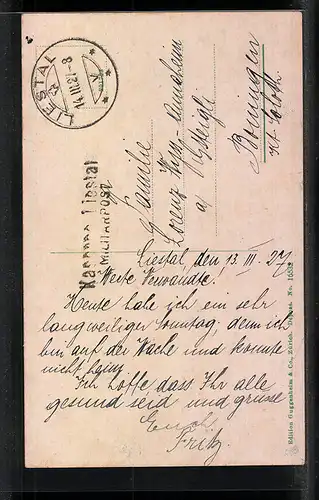 LIESTAL
14.III.27-8
Kaserne Liestal
MILITÄRPOST
Familie
Lorenz Wyss-
a/
Boningen
Kt. Soloth.
Liestal, den 13 III. 27
Werte Verwandte!
Heute habe ich ein sehr
langweiliger Sonntag, denn ich
bin auf der Wache und konnte
nicht heim
Ich hoffe dass Ihr alle
gesund seid und grüsse
Euch
Fritz
Edition Guggenheim & Co., Zürich. Dépos. No.